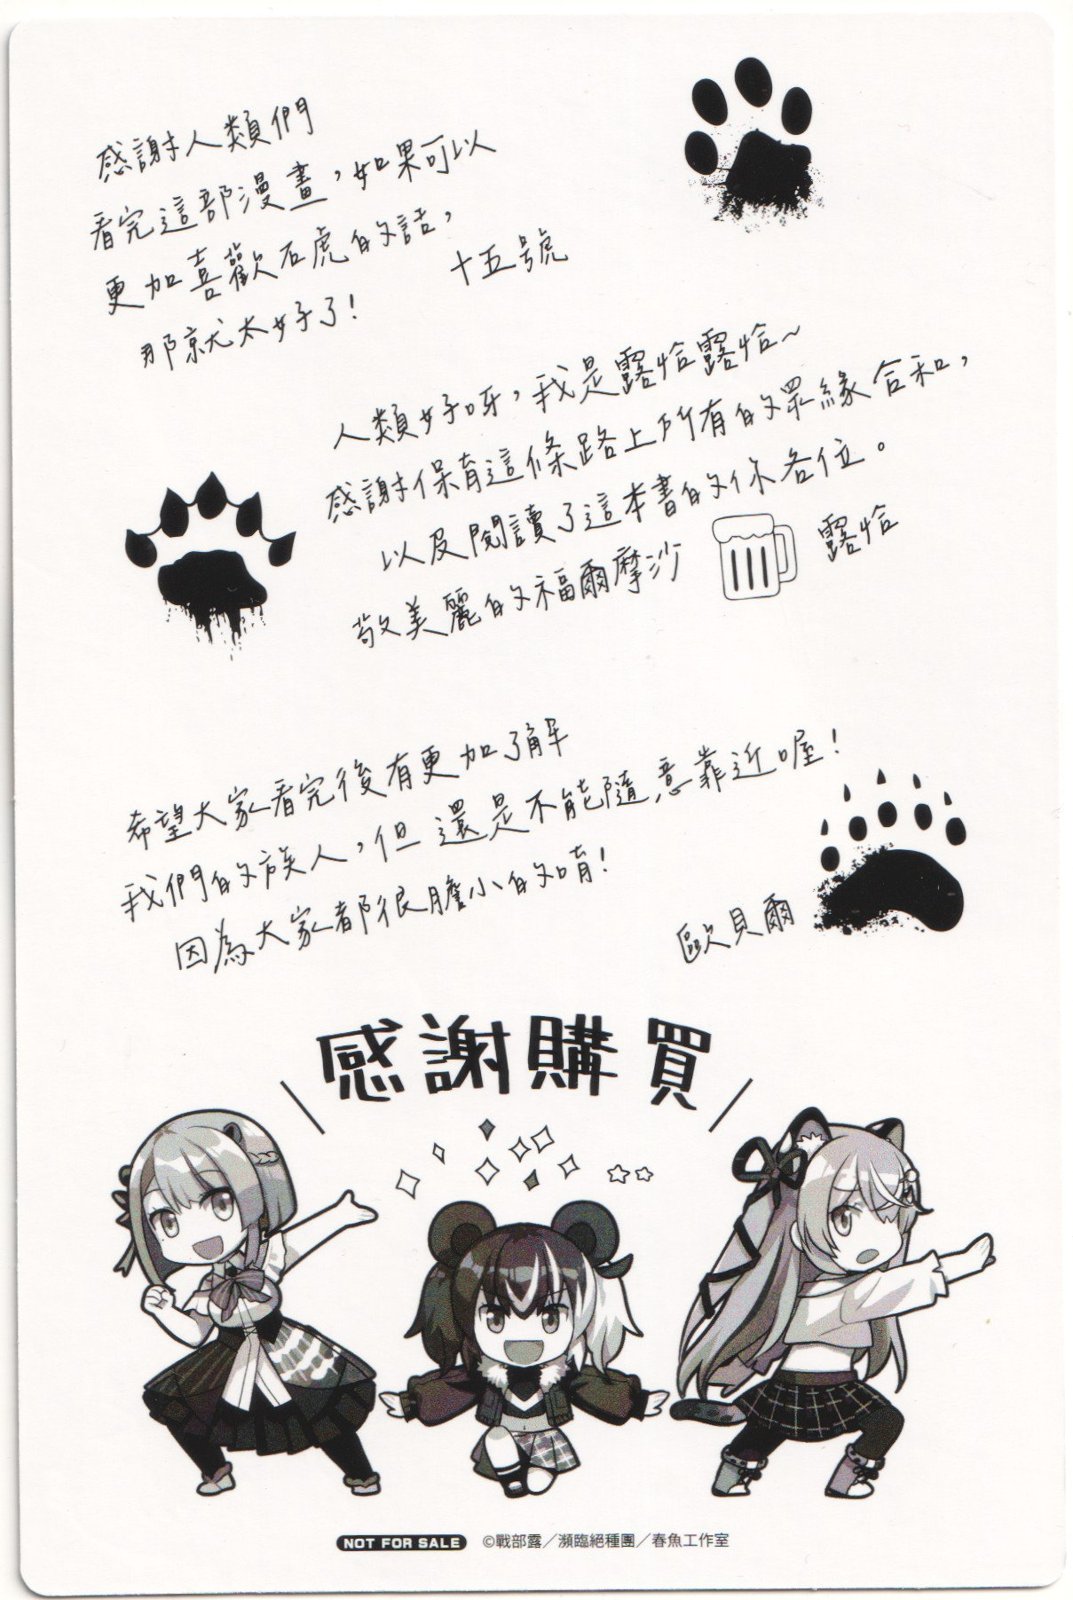 感謝人類們
看完這部漫畫，如果可以
更加喜歡石虎的話，
那就太好了！
十五號
人類好呀，我是露恰露恰~
感謝保育這條路上所有的眾緣合和，
以及閱讀了這本書的你各位。
敬美麗的福爾摩沙
露恰
希望大家看完後有更加了解
我們的族人，但還是不能隨意靠近喔！
因為大家都很膽小的唷！
歐貝爾
感謝購買
NOT FOR SALE ©戰部露／瀕臨絕種團／春魚工作室